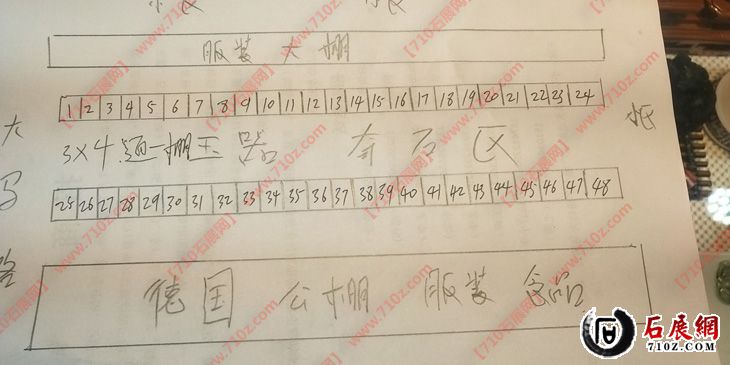 小区 小区
服装大棚
1 2 3 4 5 6 7 8 9 10 11 12 13 14 15 16 17 18 19 20 21 22 23 24
大马路
3×4通棚玉器 奇石区
25 26 27 28 29 30 31 32 33 34 35 36 37 38 39 40 41 42 43 44 45 46 47 48
德国公棚 服装 食品
【710石展网】www.710z.com
石展網
710Z.COM